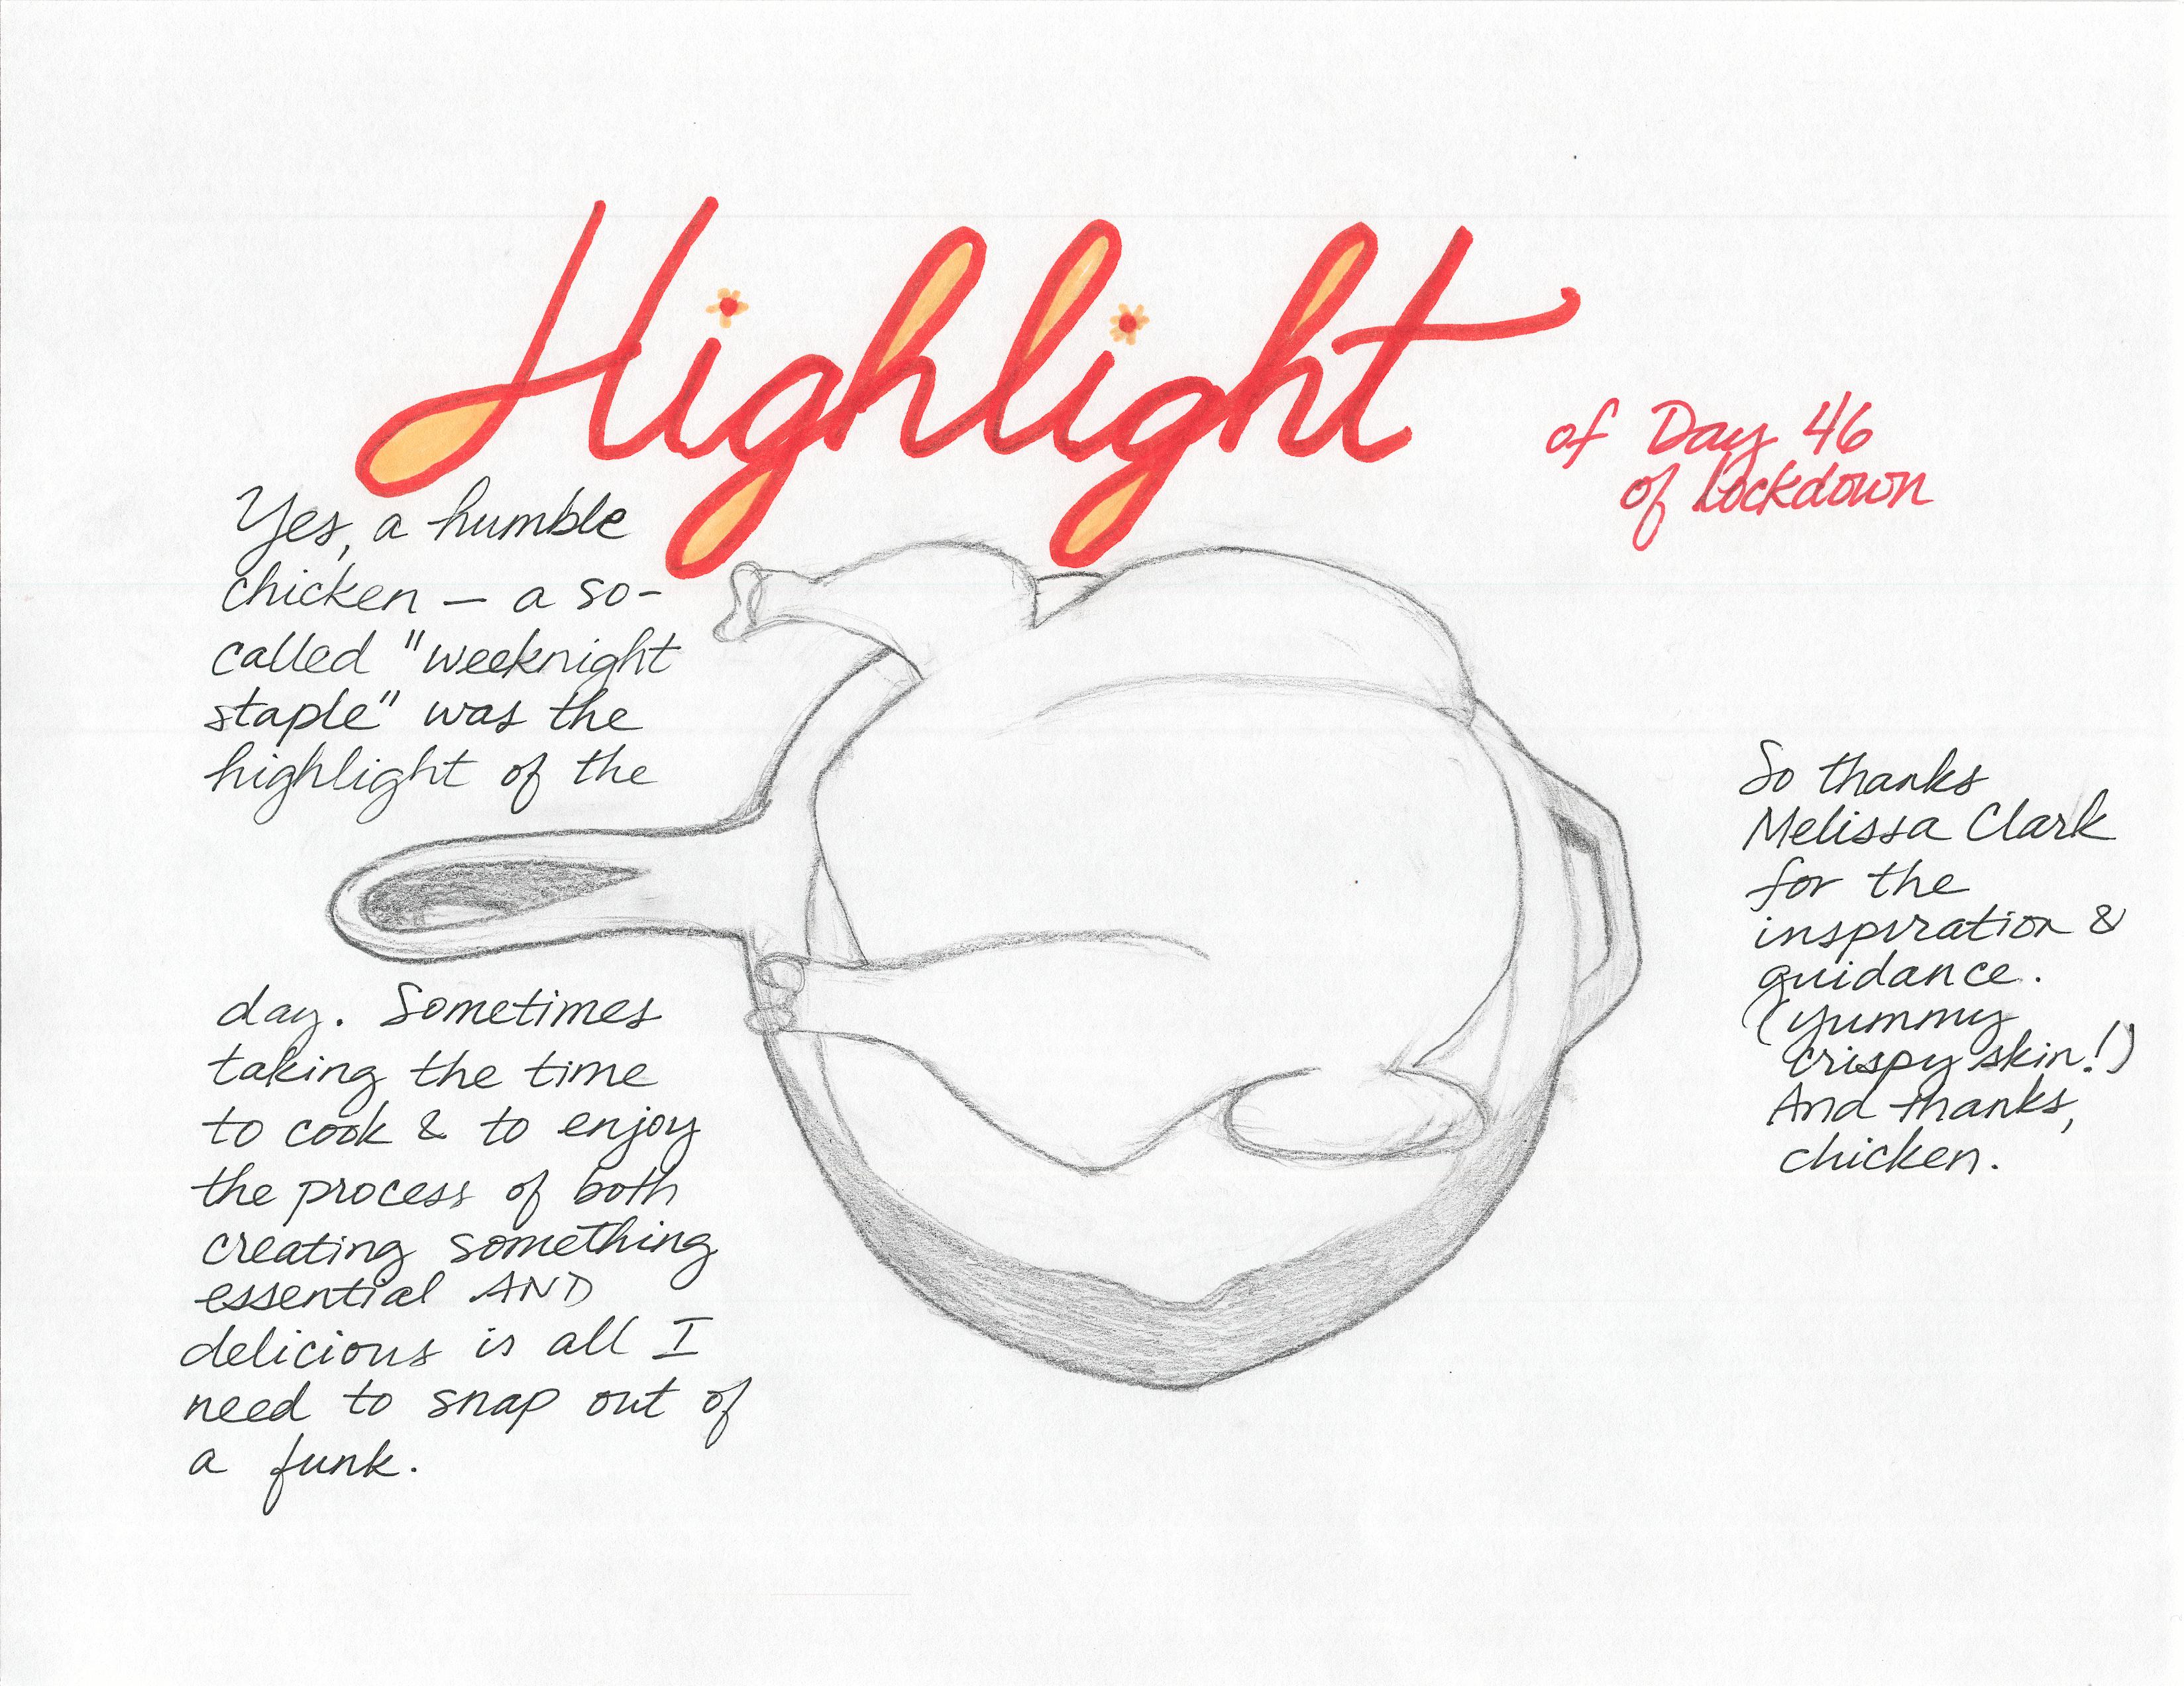 Highlight
of Day 46
of lockdown
Yes, a humble
chicken — a so-
called "weeknight
staple" was the
highlight of the
day. Sometimes
taking the time
to cook & to enjoy
the process of both
creating something
essential AND
delicious is all I
need to snap out of
a funk.
So thanks
Melissa Clark
for the
inspiration &
guidance.
(yummy
crispy skin!)
And thanks,
chicken.